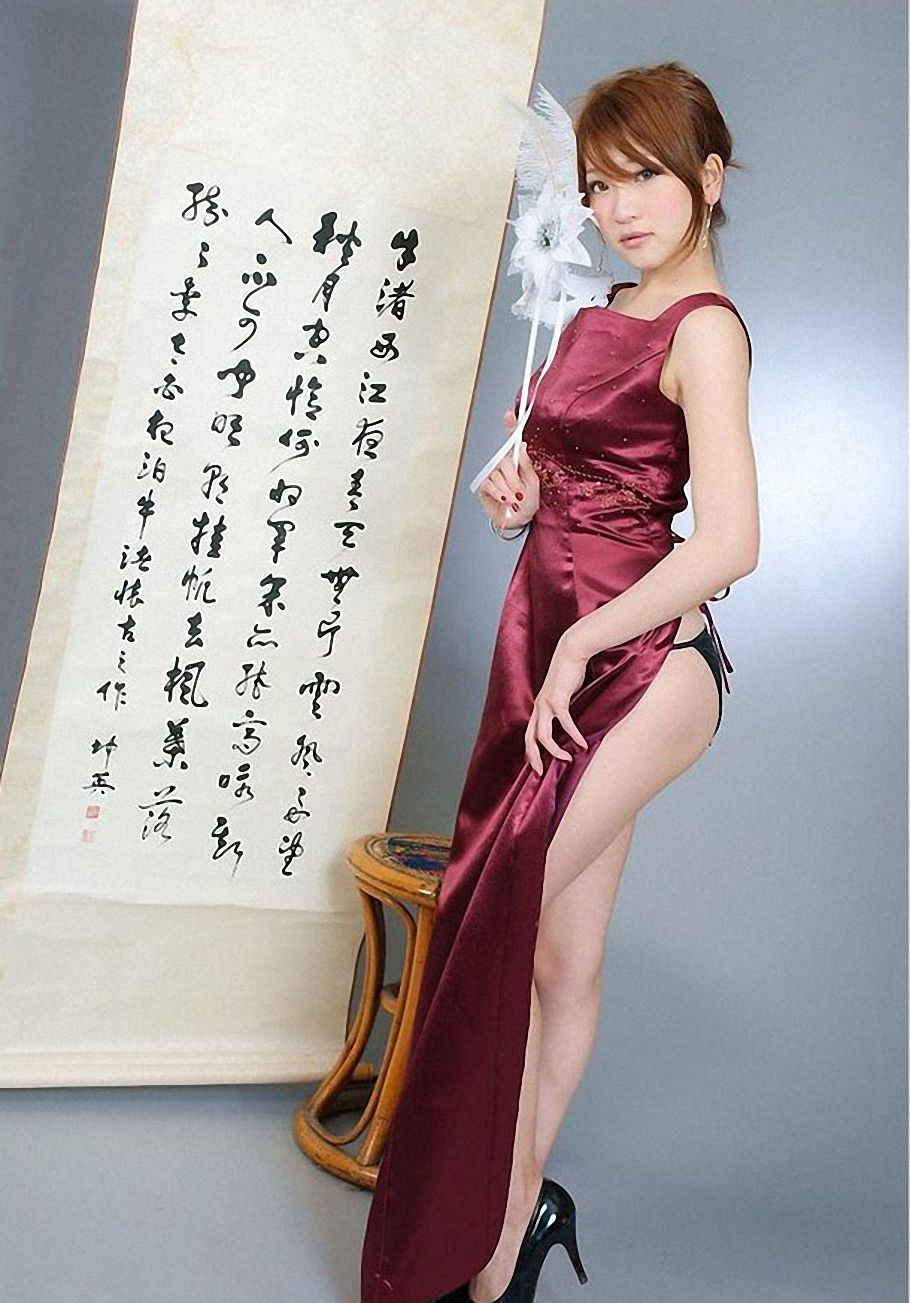 牛渚西江夜青天無片雲登舟望
秋月空憶謝將軍余亦能高詠斯
人不可聞明朝挂帆去楓葉落
紛紛李太白夜泊牛渚懷古之作
英